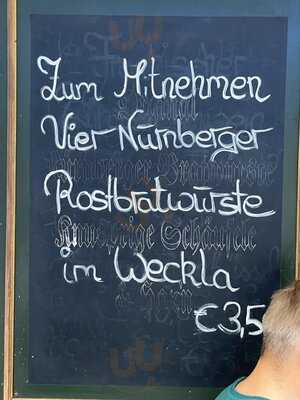 Zum Mitnehmen
Vier Nürnberger
Rostbratwürste
im Weckla
€3,5